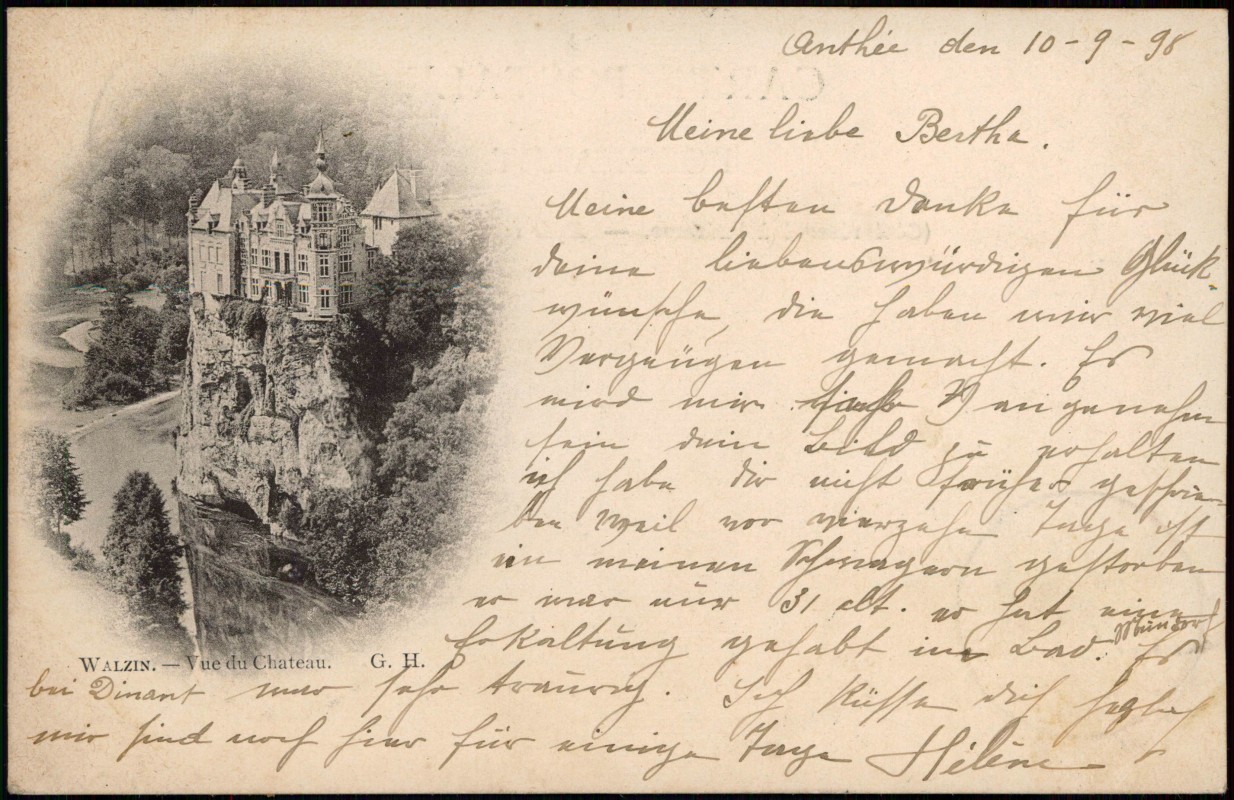 Anthée den 10-9-98
Meine liebe Bertha.
Meine besten Danke für
deine liebenswürdigen Glück-
wünsche, die haben mir viel
Vergnügen gemacht. Es
wird mir sehr angenehm
sein dein Bild zu erhalten
ich habe dir nicht früher geschrie-
ben weil vor vierzehn Tage ist
ein meinen Schwagern gestorben
er war nur 31 alt. er hat eine
Erkaltung gehabt im Bad. Es
bei Dinant war sehr traurig. Ich küsse dich herzlich
wir sind noch hier für einige Tage Hélène
WALZIN. — Vue du Chateau. G. H.